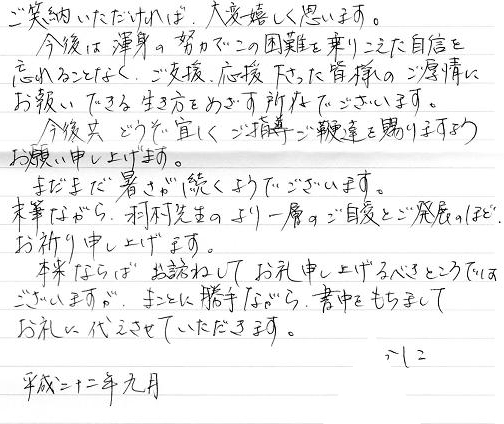 ご笑納いただければ、大変嬉しく思います。
今後は渾身の努力でこの困難を乗りこえた自信を
忘れることなく、ご支援、応援下さった皆様のご厚情に
お報いできる生き方をめざす所存でございます。
今後共どうぞ宜しくご指導ご鞭達を賜りますよう
お願い申し上げます。
まだまだ暑さが続くようでございます。
末筆ながら、村先生のより一層のご自愛とご発展のほど、
お祈り申し上げます。
本来ならばお訪ねしてお礼申し上げるべきところでは
ございますが、まことに勝手ながら、書中をもちまして
お礼に代えさせていただきます。
平成二十二年九月